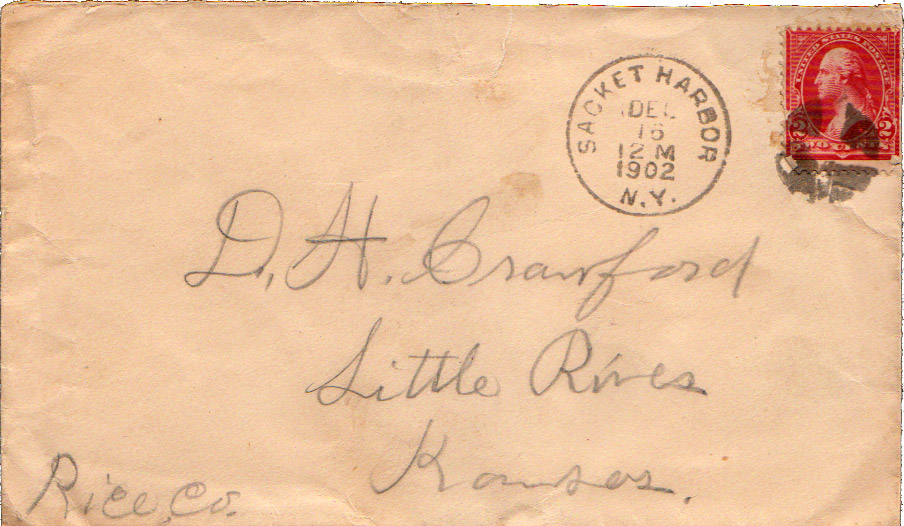 SACKET HARBOR
DEC
16
12 M
1902
N.Y.
UNITED STATES POSTAGE
2 2
TWO CENTS
D. H. Crawford
Little River
Kansas.
Rice, Co.